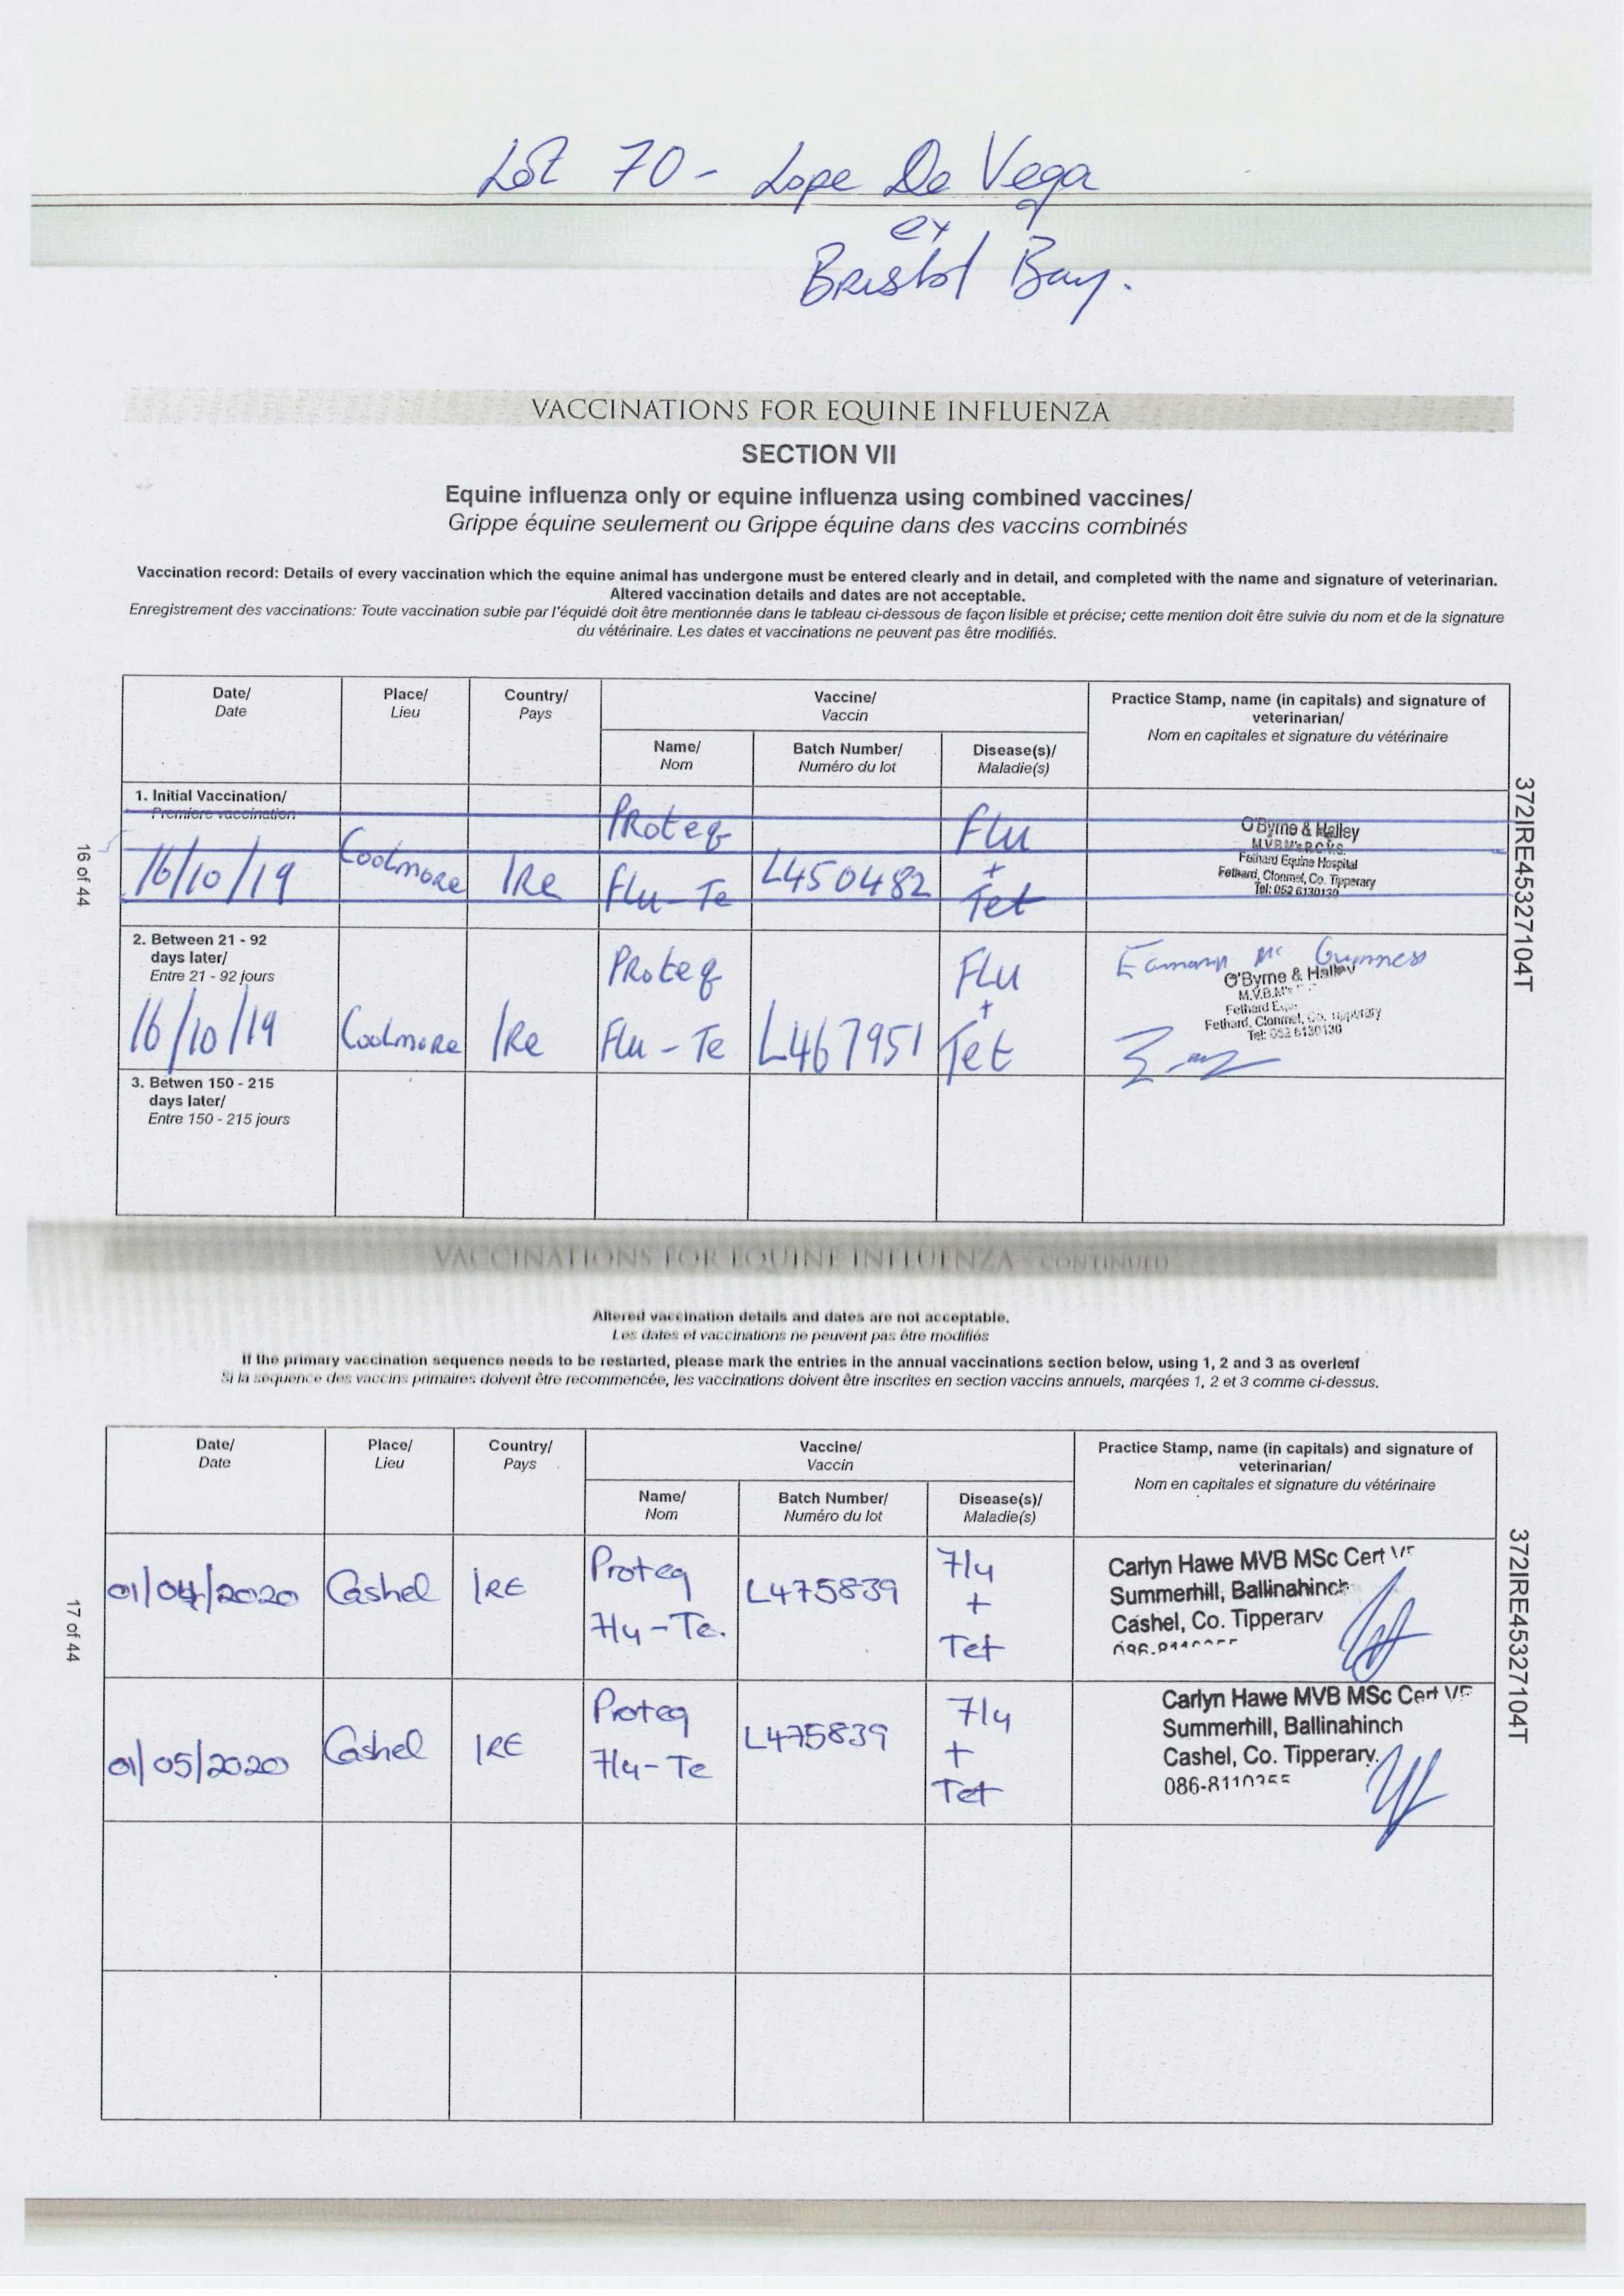 Lot 70 - Lope De Vega
ex
Bristol Bay.
VACCINATIONS FOR EQUINE INFLUENZA
SECTION VII
Equine influenza only or equine influenza using combined vaccines/
Grippe équine seulement ou Grippe équine dans des vaccins combinés
Vaccination record: Details of every vaccination which the equine animal has undergone must be entered clearly and in detail, and completed with the name and signature of veterinarian.
Altered vaccination details and dates are not acceptable.
Enregistrement des vaccinations: Toute vaccination subie par l'équidé doit être mentionnée dans le tableau ci-dessous de façon lisible et précise; cette mention doit être suivie du nom et de la signature
du vétérinaire. Les dates et vaccinations ne peuvent pas être modifiés.
Date/
Date
Place/
Lieu
Country/
Pays
Vaccine/
Vaccin
Name/
Nom
Batch Number/
Numéro du lot
Disease(s)/
Maladie(s)
Practice Stamp, name (in capitals) and signature of
veterinarian/
Nom en capitales et signature du vétérinaire
1. Initial Vaccination/
Premiere vaccination
16/10/19
Coolmore
IRe
PRoteq
Flu-Te
L450482
FLu
+
Tet
O'Byrne & Halley
M.V.B.M's R.C.V.S.
Fethard Equine Hospital
Fethard, Clonmel, Co. Tipperary
Tel: 052 6130130
2. Between 21 - 92
days later/
Entre 21 - 92 jours
16/10/19
Coolmore
IRe
PRoteq
Flu - Te
L467951
FLu
+
Tet
Eamonn Mc Guinness
O'Byrne & Halley
M.V.B.M's
Fethard
Fethard, Clonmel, Co. Tipperary
Tel: 052 6130130
3. Betwen 150 - 215
days later/
Entre 150 - 215 jours
16 of 44
372IRE45327104T
VACCINATIONS FOR EQUINE INFLUENZA - CONTINUED
Altered vaccination details and dates are not acceptable.
Les dates et vaccinations ne peuvent pas être modifiés
If the primary vaccination sequence needs to be restarted, please mark the entries in the annual vaccinations section below, using 1, 2 and 3 as overleaf
Si la sequence des vaccins primaires doivent être recommencée, les vaccinations doivent être inscrites en section vaccins annuels, marqées 1, 2 et 3 comme ci-dessus.
Date/
Date
Place/
Lieu
Country/
Pays
Vaccine/
Vaccin
Name/
Nom
Batch Number/
Numéro du lot
Disease(s)/
Maladie(s)
Practice Stamp, name (in capitals) and signature of
veterinarian/
Nom en capitales et signature du vétérinaire
01/04/2020
Cashel
IRE
Proteq
Flu-Te.
L475839
Flu
+
Tet
Carlyn Hawe MVB MSc Cert
Summerhill, Ballinahinch
Cashel, Co. Tipperary
01/05/2020
Cashel
IRE
Proteq
Flu-Te
L475839
Flu
+
Tet
Carlyn Hawe MVB MSc Cert
Summerhill, Ballinahinch
Cashel, Co. Tipperary.
086-8110355
17 of 44
372IRE45327104T